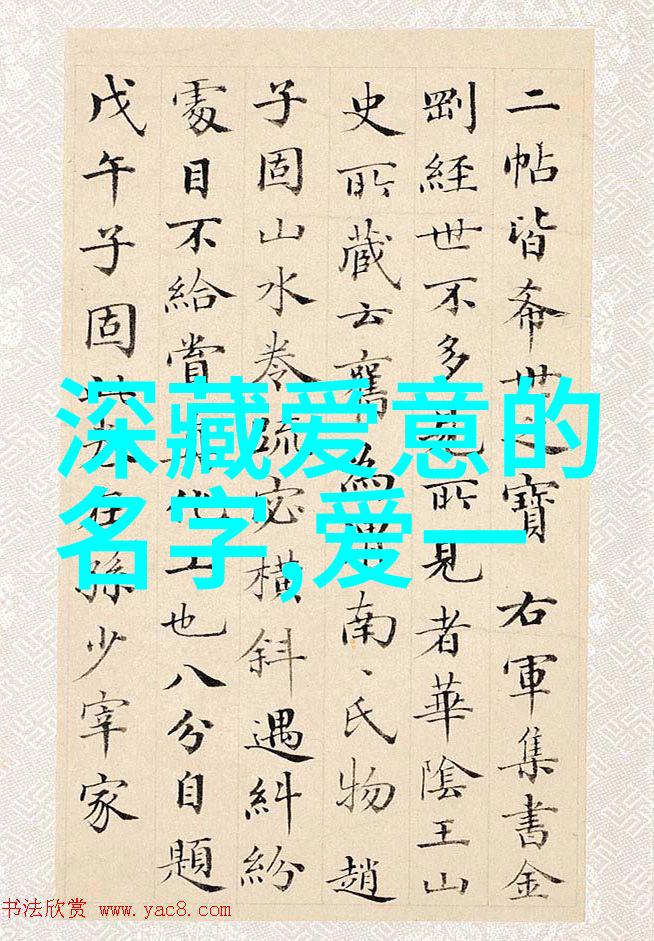 二帖皆希世之寶右軍集書金
剛經世不多見所見者華陰王山
史所藏云舊為南、氏物趙
子固山水卷疏宓橫斜遇糾紛
處目不給賞化工也八分自題
戊午子固此卷在孫少宰家
深藏爱意的
名字,爱一
书法欣赏 www.yac8.com